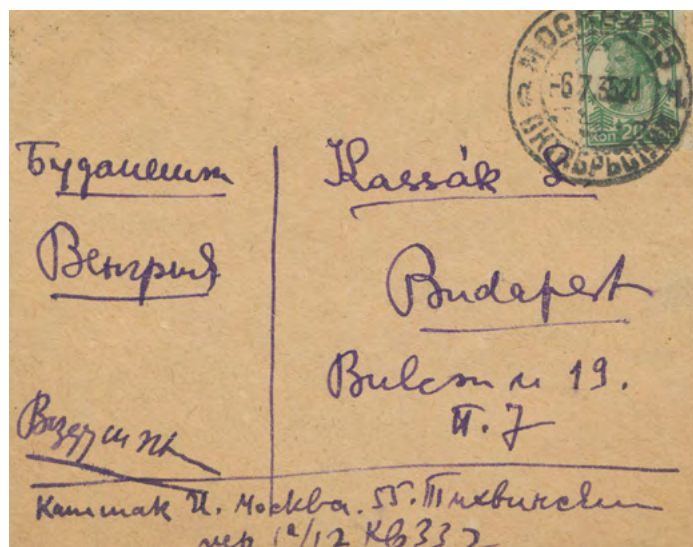 МОСКВА 55
-6 7 35 20
ОКТЯБРЬСКАЯ
КОП 20
Будапешт
Венгрия
Kassák L
Budapest
Bulcsu u 19.
II. 7
Каттак И. Москва. 55. Тихвинский
пер 1а/12 кв 332